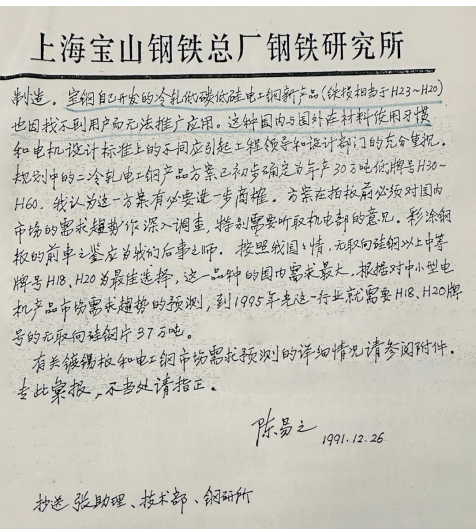 上海宝山钢铁总厂钢铁研究所
制造。宝钢自己开发的冷轧低碳低硅电工钢新产品(铁损相当于H23~H20)
也因找不到用户而无法推广应用。这种国内与国外在材料使用习惯
和电机设计标准上的不同应引起工程领导和设计部门的充分重视。
规划中的二冷轧电工钢产品方案已初步确定为年产30万吨低牌号H30~
H60。我认为这一方案有必要进一步商榷。方案在拍板前必须对国内
市场的需求趋势作深入调查,特别需要听取机电部的意见。彩涂钢
板的前车之鉴应为我们后事之师。按照我国国情,无取向硅钢以上中等
牌号H18、H20为最佳选择,这一品种的国内需求最大,根据对中小型电
机产品市场需求趋势的预测,到1995年光这一行业就需要H18、H20牌
号的无取向硅钢片37万吨。
有关镀锡板和电工钢市场需求预测的详细情况请参阅附件。
专此彙报,不当处请指正。
陈易之 1991.12.26
抄送 张助理、技术部、钢研所